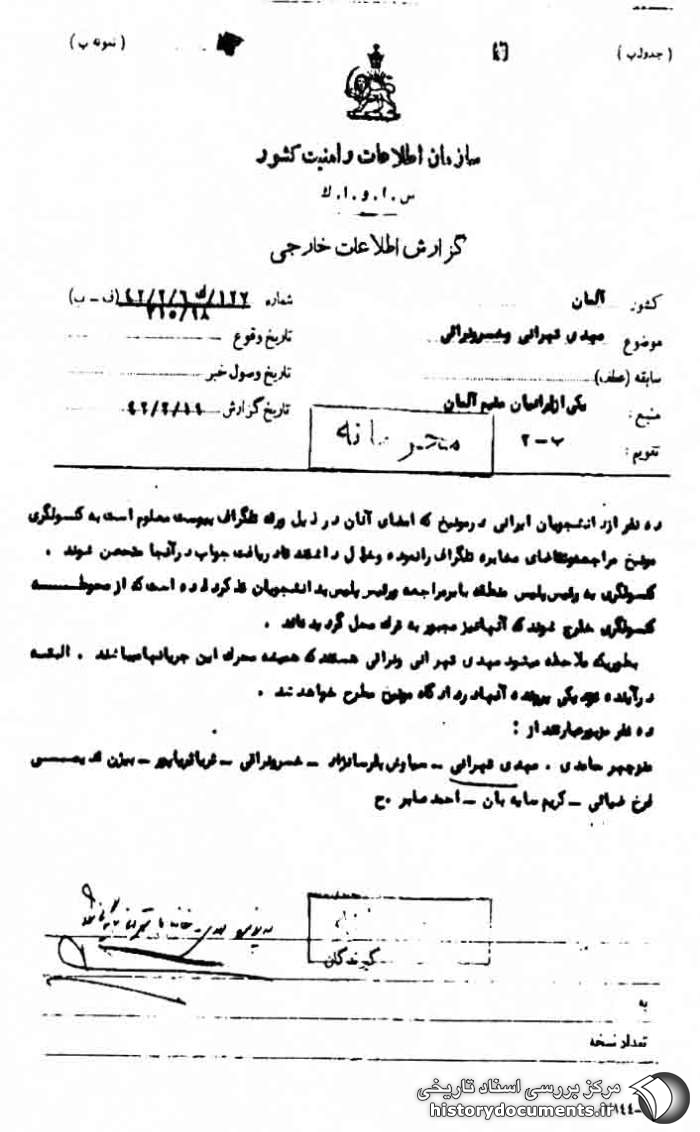 (جدول ب)
(نمونه ب)
سازمان اطلاعات و امنیت کشور
س . ا . و . ا . ك
گزارش اطلاعات خارجی
کشور آلمان
شماره
(ف - ب)
موضوع مهدی تهرانی و خسرو نراقی
تاریخ وقوع
سابقه (عطف)
تاریخ وصول خبر
منبع: یکی از ایرانیان مقیم آلمان
تاریخ گزارش
تقویم: ب - ۲
محرمانه
ده نفر از دانشجویان ایرانی در مونیخ که امضای آنان در ذیل ورقه تلگراف پیوست معلوم است به کنسولگری
مونیخ مراجعه و تقاضای مخابره تلگراف را نموده و قول داشتند تا دریافت جواب در آنجا متحصن شوند .
کنسولگری به رئیس پلیس منطقه مراجعه و رئیس پلیس به دانشجویان تذکر داده است که از محوطه
کنسولگری خارج شوند که آنها نیز مجبور به ترك محل گردیده‌اند .
بطوریکه ملاحظه میشود مهدی تهرانی و نراقی هستند که همیشه محرك این جریانها میباشند . البته
در آینده نزدیکی پرونده آنها در دادگاه مونیخ مطرح خواهد شد .
ده نفر مزبور عبارتند از :
منوچهر حامدی . مهدی تهرانی - سیاوش پارسانژاد - خسرو نراقی - ثریا ثریاپور - بیژن قدیمی
فرخ ضیائی - کریم سایه بان - احمد صابر .ح
گیرندگان
به
تعداد نسخه
مرکز بررسی اسناد تاریخی
historydocuments.ir